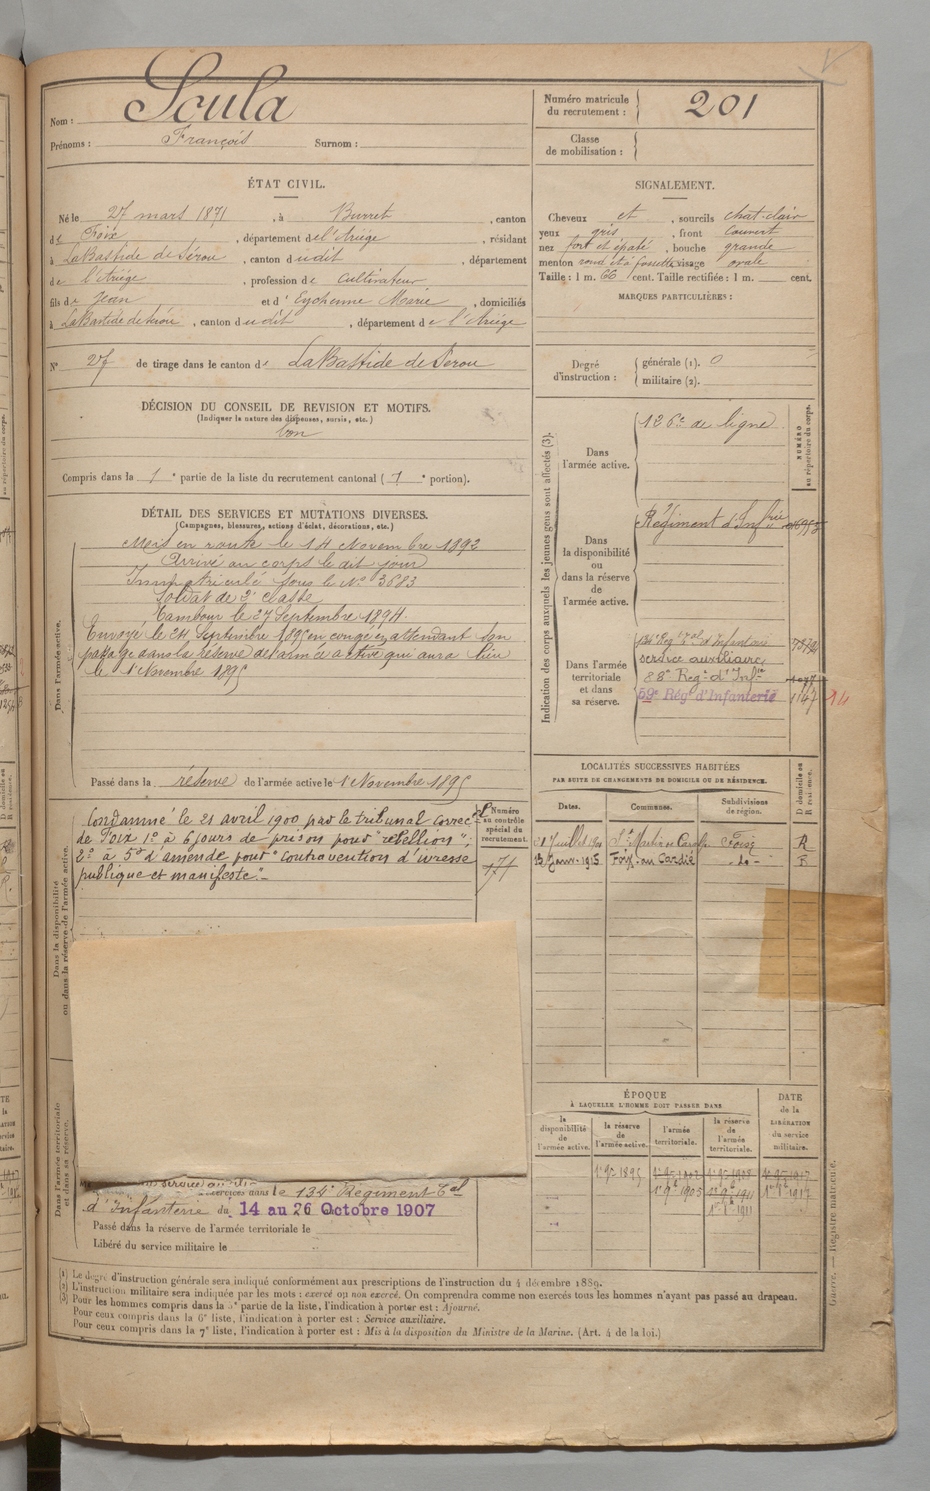 Nom : Soula
Prénoms : François Surnom :
Numéro matricule du recrutement : 201
Classe de mobilisation :
ÉTAT CIVIL.
Né le 27 mars 1871, à Burret, canton
de Foix, département de l'Ariège, résidant
à LaBastide de Sérou, canton dudit, département
de l'Ariège, profession de Cultivateur
fils de Jean et d'Eychenne Marie, domiciliés
à LaBastide de Sérou, canton dudit, département de l'Ariège
N° 27 de tirage dans le canton de LaBastide de Sérou
SIGNALEMENT.
Cheveux et, sourcils chat. clair
yeux gris, front couvert
nez fort et épaté, bouche grande
menton rond et à fossette visage ovale
Taille : 1 m. 66 cent. Taille rectifiée : 1 m. cent.
MARQUES PARTICULIÈRES :
Degré d'instruction : générale (1). 0
militaire (2).
DÉCISION DU CONSEIL DE REVISION ET MOTIFS.
(Indiquer la nature des dispenses, sursis, etc.)
bon
Compris dans la 1e partie de la liste du recrutement cantonal (1e portion).
DÉTAIL DES SERVICES ET MUTATIONS DIVERSES.
(Campagnes, blessures, actions d'éclat, décorations, etc.)
Dans l'armée active.
Mis en route le 14 Novembre 1892
Arrivé au corps le dit jour
Immatriculé sous le N° 3683
Soldat de 2e classe
Tambour le 27 Septembre 1894
Envoyé le 24 Septembre 1895 en congé en attendant son
passage dans la réserve de l'armée active qui aura lieu
le 1 Novembre 1895
Passé dans la réserve de l'armée active le 1 Novembre 1895
Indication des corps auxquels les jeunes gens sont affectés (3).
NUMÉRO au répertoire du corps.
Dans l'armée active.
126e de ligne
Dans la disponibilité ou dans la réserve de l'armée active.
Régiment d'Infrie
Dans l'armée territoriale et dans sa réserve.
134 Reg t Tal d'Infanterie
service auxiliaire
88e Reg. d'Infie
59e Régt d'Infanterie 1147
LOCALITÉS SUCCESSIVES HABITÉES
PAR SUITE DE CHANGEMENTS DE DOMICILE OU DE RÉSIDENCE.
Dates. Communes. Subdivisions de région. D domicile ou R résidence.
Foix R
13 Janv. 1915 -do-
Dans la disponibilité ou dans la réserve de l'armée active.
Numéro au contrôle spécial du recrutement.
Condamné le 21 avril 1900 par le tribunal correctel
de Foix 1° à 6 jours de prison pour "rébellion";
2° à 5f d'amende pour "contravention d'ivresse
publique et manifeste".-
Dans l'armée territoriale et dans sa réserve.
exercices dans le 134e Régiment Tal
d'Infanterie du 14 au 26 Octobre 1907
Passé dans la réserve de l'armée territoriale le
Libéré du service militaire le
ÉPOQUE
À LAQUELLE L'HOMME DOIT PASSER DANS
la disponibilité de l'armée active.
la réserve de l'armée active.
l'armée territoriale.
la réserve de l'armée territoriale.
DATE de la LIBÉRATION du service militaire.
1er 9bre 1895
(1) Le degré d'instruction générale sera indiqué conformément aux prescriptions de l'instruction du 4 décembre 1889.
(2) L'instruction militaire sera indiquée par les mots : exercé ou non exercé. On comprendra comme non exercés tous les hommes n'ayant pas passé au drapeau.
(3) Pour les hommes compris dans la 5e partie de la liste, l'indication à porter est : Ajourné.
Pour ceux compris dans la 6e liste, l'indication à porter est : Service auxiliaire.
Pour ceux compris dans la 7e liste, l'indication à porter est : Mis à la disposition du Ministre de la Marine. (Art. 4 de la loi.)
Guerre. — Registre matricule.